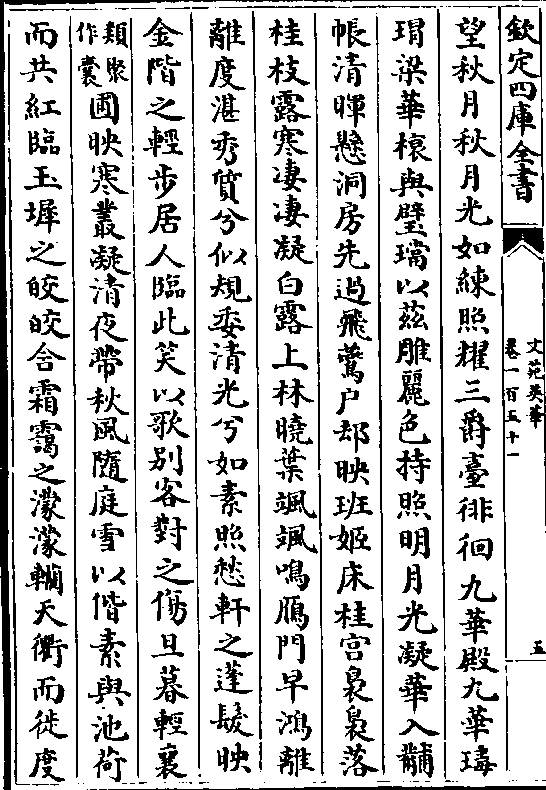 欽定四庫全書
文苑英華
卷一百五十一
五
望秋月秋月光如練照耀三爵臺徘徊九華殿九華瑇
瑁梁華榱與璧璫以兹雕麗色持照明月光凝華入黼
帳清暉懸洞房先過飛鷰户却映班姬床桂宫裊裊落
桂枝露寒凄凄凝白露上林曉葉颯颯鳴鴈門早鴻離
離度湛秀質兮似規委清光兮如素照愁軒之蓬髮映
金階之輕步居人臨此笑以歌别客對之傷旦暮輕襄
類聚作囊圃映寒叢凝清夜帶秋風隨庭雪以偕素與池荷
而共紅臨玉墀之皎皎含霜靄之濛濛轥天衢而徙度